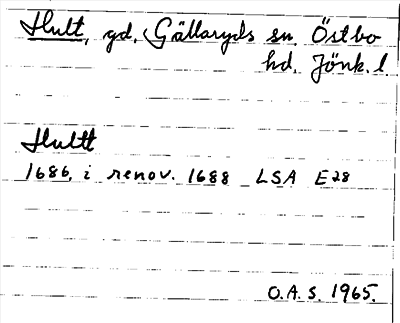 Hult, gd, Gällaryds sn. Östbo
hd. Jönk. l.
Hultt
1686, i renov. 1688 LSA E28
O.A.S. 1965.